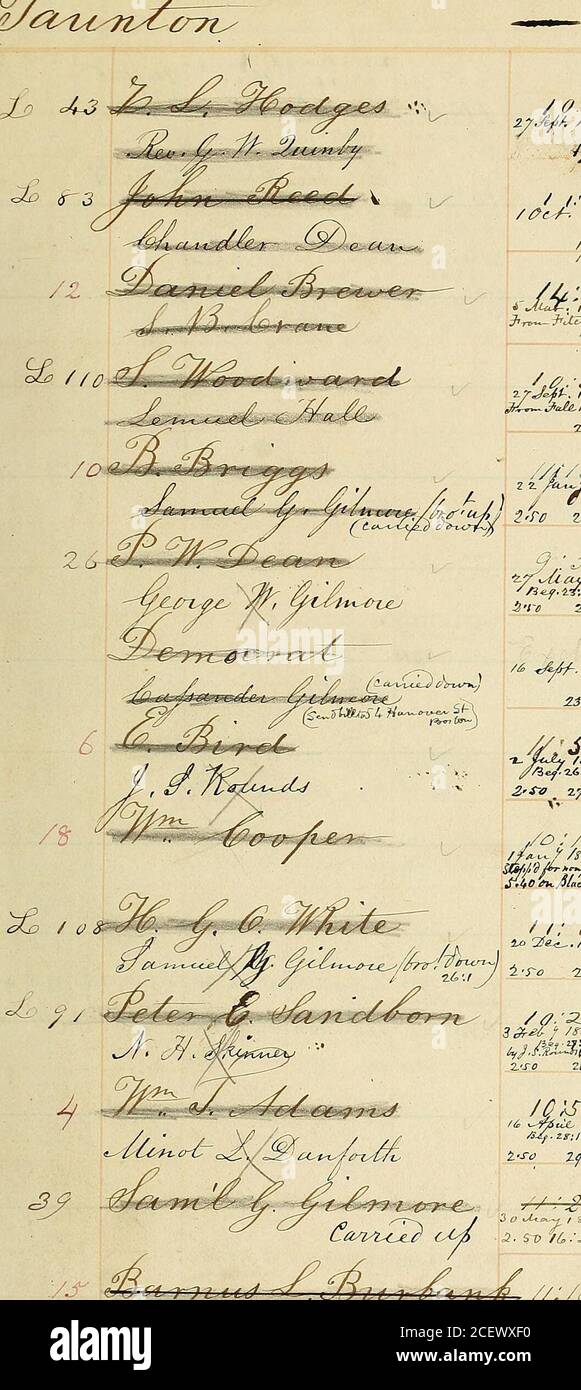 Taunton
L 43 L. Hodges
27 Sept.
Rev. G. W. Quinby
L 83 John Reed
1 Oct.
Chandler Dean
12 Daniel Brewer
5 Mar.
S. B. Crane
L 110 S. Woodward
27 Sept.
Lemuel Hall
10 B. Briggs
22 Jan
Samuel G. Gilmore (bro't up)
(carried down)
2.50 2
26 P. W. Dean
27 May
George W. Gilmore
2.50 2
Democrat
16 Sept.
Cassander Gilmore (carried down)
(Send bill to 54 Hanover St
Boston)
23
6 E. Bird
2 July
Beg. 26
J. S. Rounds
2.50 27
18 Wm. Cooper
1 Jan'y
Stopp'd for non
5.40 on
L 108 H. G. O. White
20 Dec.
Samuel G. Gilmore (bro't down)
26:1
2.50 2
L 91 Peter E. Sandborn
3 Feb'y 18
N. H. Skinner
by J. S. Rounds
2.50
4 Wm. J. Adams
16 April
Beg. 28:1
Minot L. Danforth
2.50 29
39 Sam'l G. Gilmore
30 May
Carried up
2.50 16:
15 Barnus L. Burbank
alamy
Image ID: 2CEWXF0
www.alamy.com